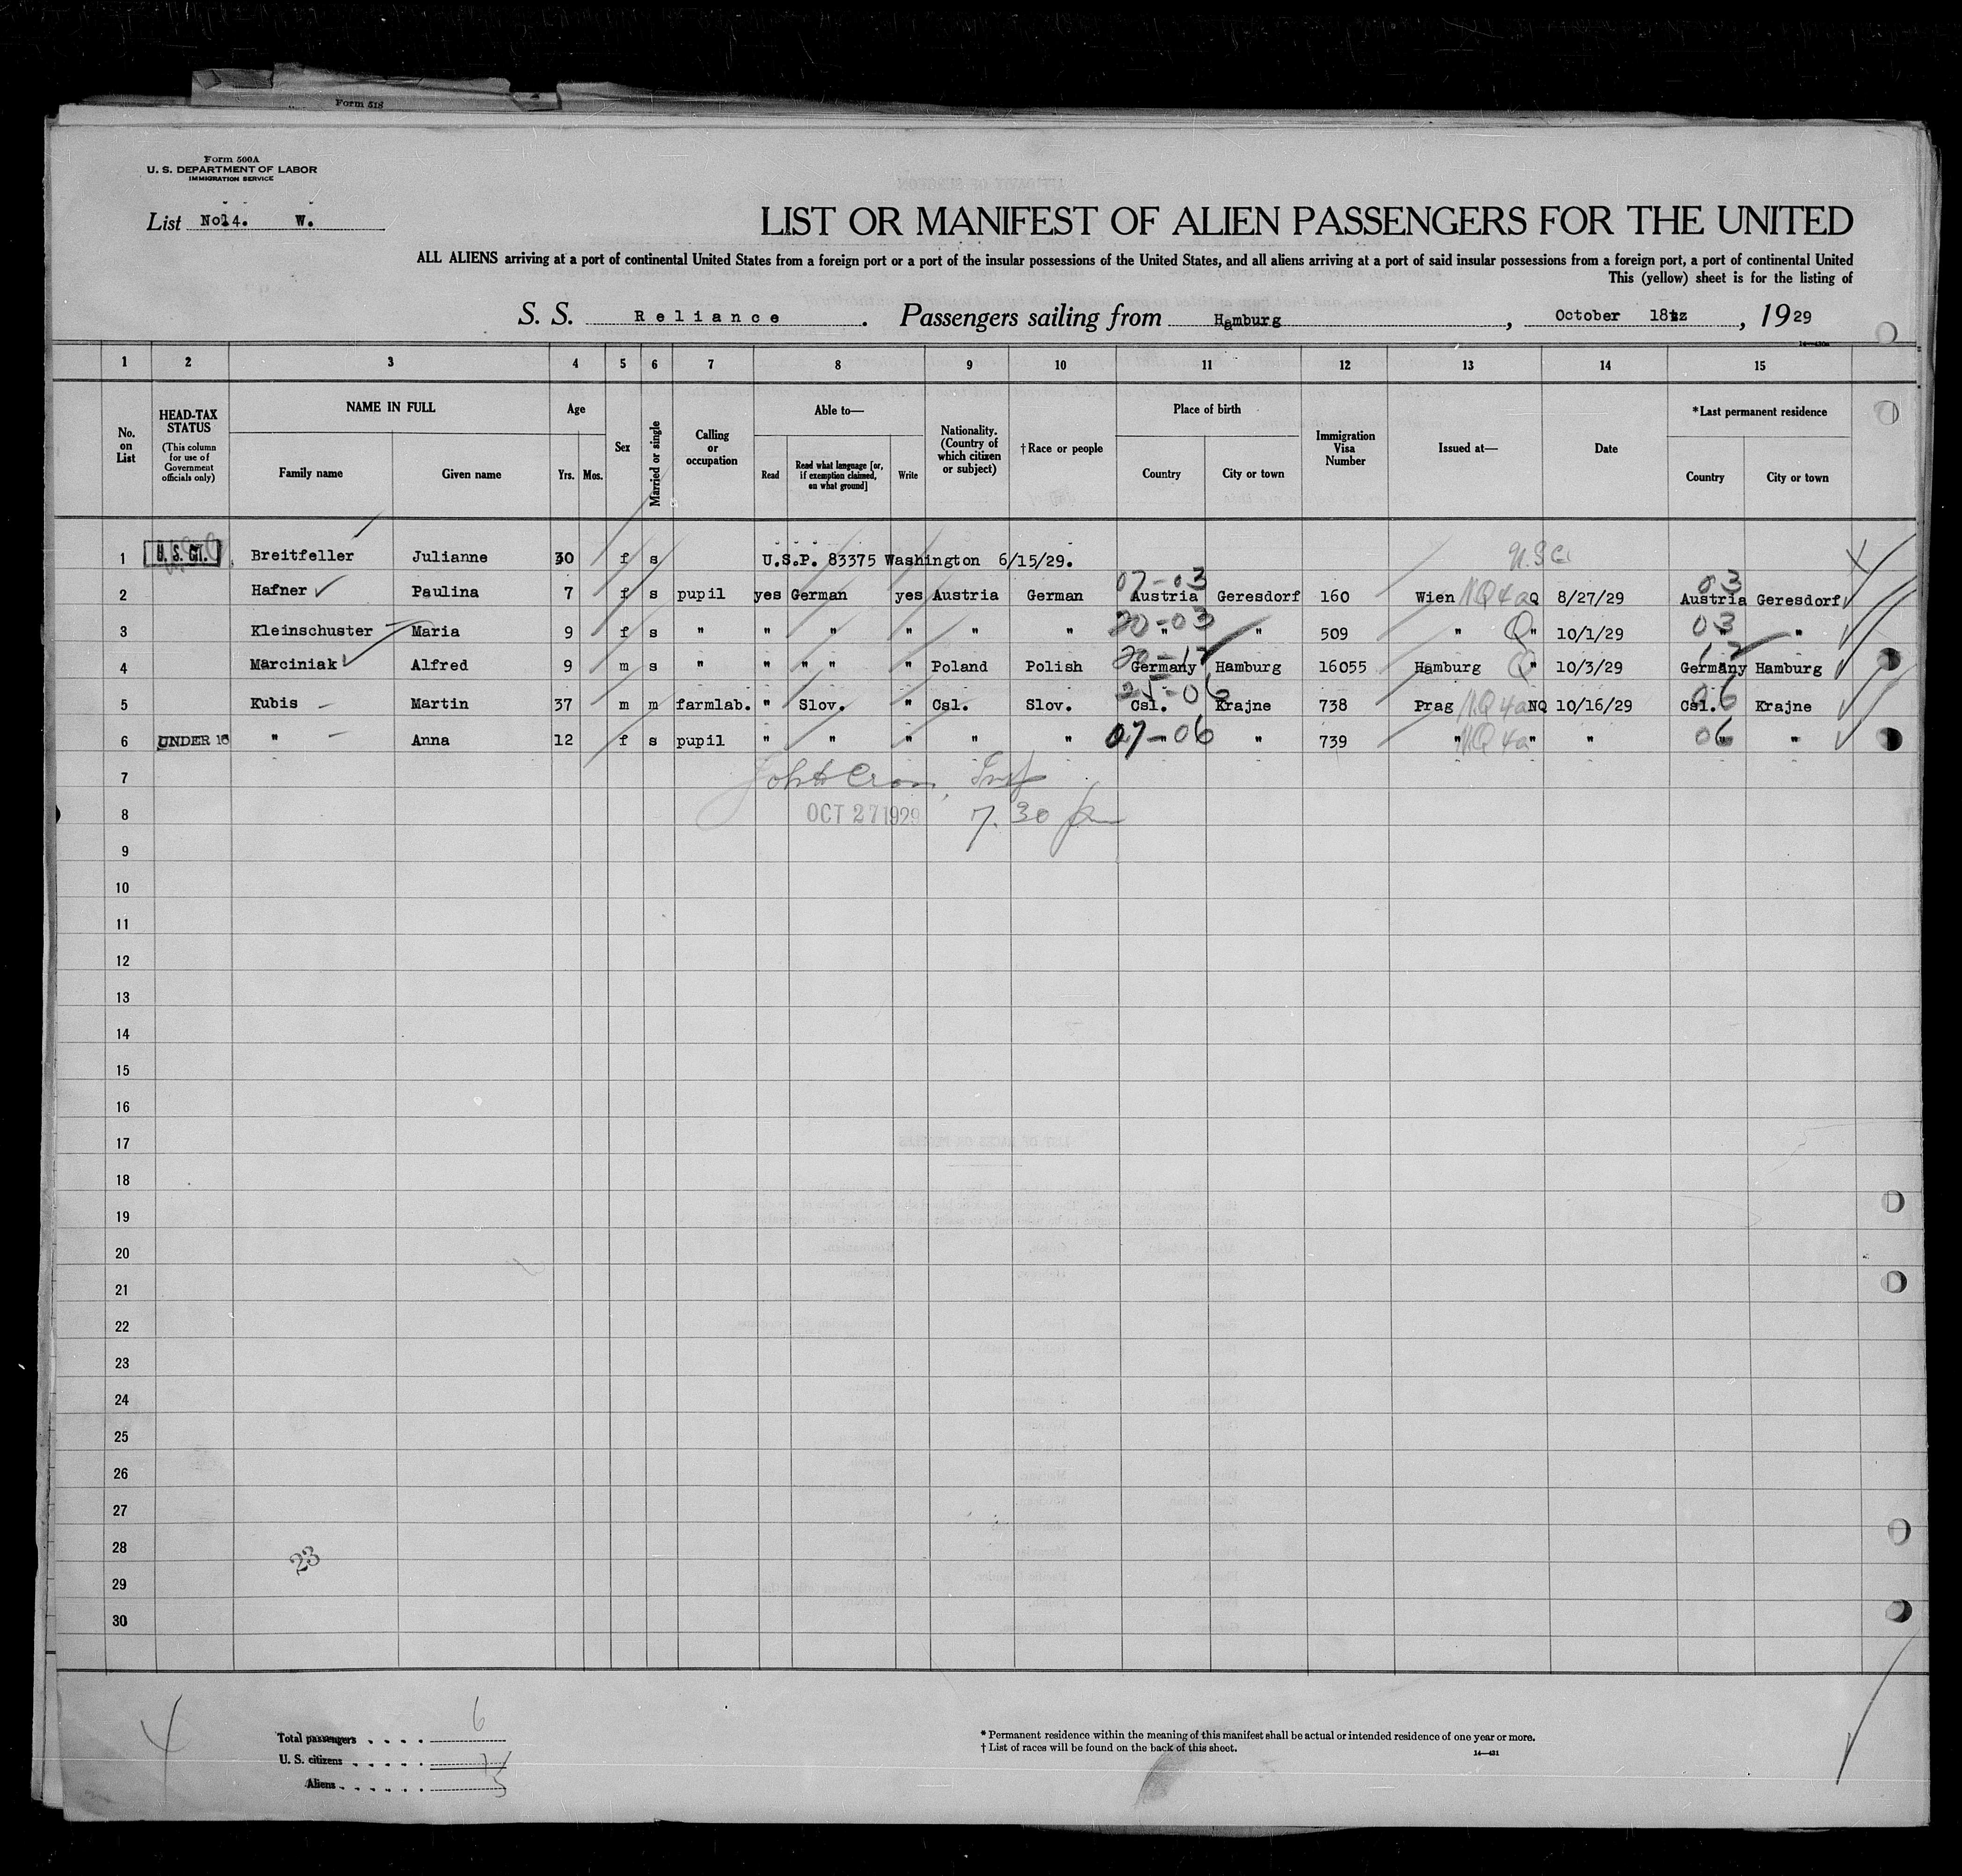 Form 518
Form 500A
U. S. DEPARTMENT OF LABOR
IMMIGRATION SERVICE
List No14. W.
LIST OR MANIFEST OF ALIEN PASSENGERS FOR THE UNITED
ALL ALIENS arriving at a port of continental United States from a foreign port or a port of the insular possessions of the United States, and all aliens arriving at a port of said insular possessions from a foreign port, a port of continental United
This (yellow) sheet is for the listing of
S. S. Reliance. Passengers sailing from Hamburg, October 18, 1929
1 2 3 4 5 6 7 8 9 10 11 12 13 14 15
No. on List
HEAD-TAX STATUS
(This column for use of Government officials only)
NAME IN FULL
Family name Given name
Age
Yrs. Mos.
Sex
Married or single
Calling or occupation
Able to—
Read
Read what language [or, if exemption claimed, on what ground]
Write
Nationality. (Country of which citizen or subject)
†Race or people
Place of birth
Country City or town
Immigration Visa Number
Issued at—
Date
*Last permanent residence
Country City or town
1 U. S. CIT. Breitfeller Julianne 30 f s U.S.P. 83375 Washington 6/15/29. U.S.C.
07-03 03
2 Hafner Paulina 7 f s pupil yes German yes Austria German Austria Geresdorf 160 Wien NQ4a Q 8/27/29 Austria Geresdorf
20-03 03
3 Kleinschuster Maria 9 f s " " " " " " " " 509 " Q " 10/1/29 " "
4 Marciniak Alfred 9 m s " " " " " Poland Polish Germany Hamburg 16055 Hamburg Q " 10/3/29 Germany Hamburg
25-06 06
5 Kubis Martin 37 m m farmlab. " Slov. " Csl. Slov. Csl. Krajne 738 Prag NQ4a NQ 10/16/29 Csl. Krajne
6 UNDER 16 " Anna 12 f s pupil " " " " " 07-06 " " 739 " NQ4a " " 06 " "
7
8 OCT 27 1929 7.30 pm
9
10
11
12
13
14
15
16
17
18
19
20
21
22
23
24
25
26
27
28 23
29
30
Total passengers . . . . 6
U. S. citizens . . . . . 1
Aliens . . . . . . 5
* Permanent residence within the meaning of this manifest shall be actual or intended residence of one year or more.
† List of races will be found on the back of this sheet.
14—431